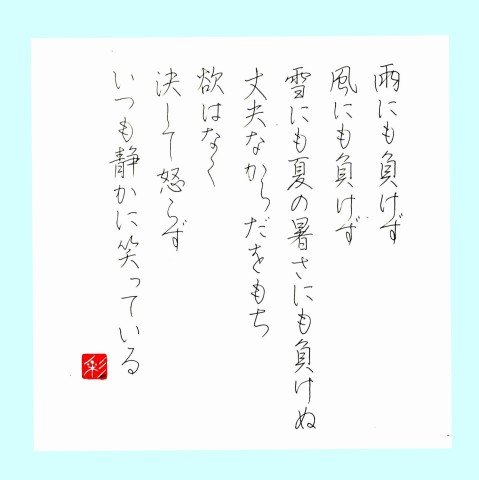 雨にも負けず
風にも負けず
雪にも夏の暑さにも負けぬ
丈夫なからだをもち
欲はなく
決して怒らず
いつも静かに笑っている
彩